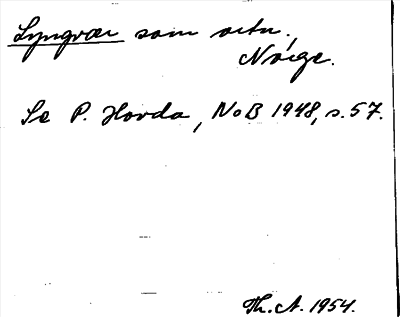 Lyngvær som ortn.,
Norge.
Se P. Hovda, NoB 1948, s. 57.
Th. A. 1954.